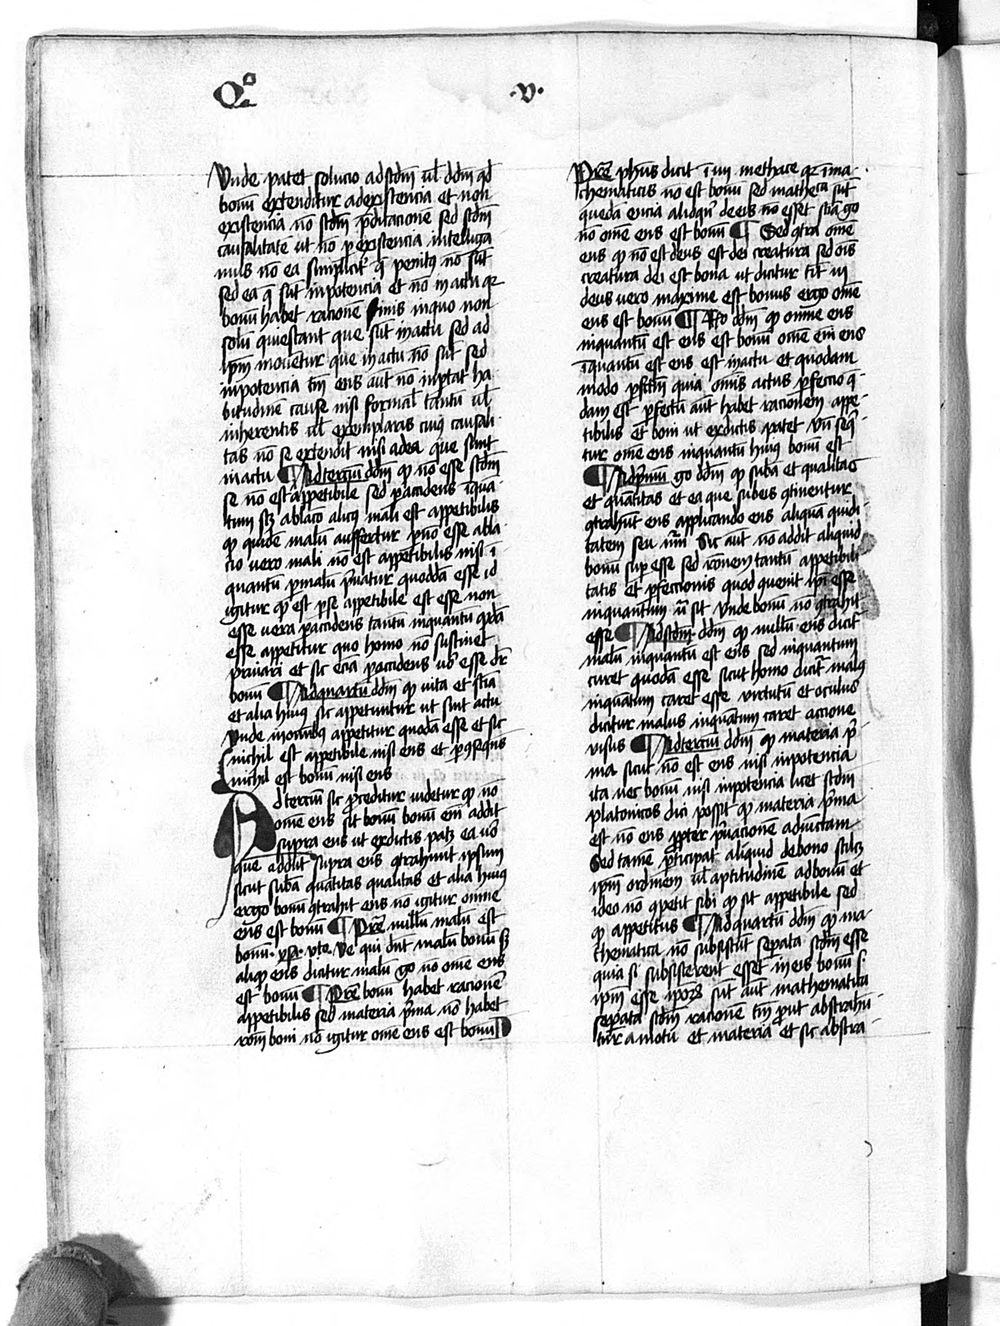 Qo .v.
Unde patet solucio ad scdm ul ddm qd
bonu extenditur ad existencia et non
existencia no scdm predicacione sed scdm
causalitate ut no p existencia intelliga
mus no ea simplicit' q penitus no sut
sed ea q sut in potencia et no in actu qr
bonu habet racione finis in quo non
solu quiescant que sut in actu sed ad
ipm mouetur que in actu no sut sed
in potencia tm ens aut no inptat ha
bitudine cause nisi formal' tantu ul
inherentis ul exemplaris cuius causali
tas no se extendit nisi ad ea que sunt
in actu ¶ Ad terciu ddm qp no esse scdm
se no est appetibile sed p accidens inqua
tum sz ablacio alicuius mali est appetibilis
qp quide malu auffertur p no esse abla
cio vero mali no est appetibilis nisi i
quantu p malu pruatur quodda esse id
igitur qp est p se appetibile est esse non
esse vero p accidens tantu inquantu qdda
esse appetitur quo homo no sustinet
priuari et sic ecia p accidens no esse dr
bonu ¶ Ad quartu ddm qp vita et scia
et alia huius sic appetuntur ut sunt actu
Unde in omibus appetitur quoda esse et sic
nichil est appetibile nisi ens et p consequens
nichil est bonu nisi ens
Ad terciu sic proceditur videtur qp no
ome ens sit bonu bonu em addit
supra ens ut ex dictis patz ea vo
que addut supra ens qtrahunt ipsum
sicut suba quantitas qualitas et alia huius
ergo bonu qtrahit ens no igitur omne
ens est bonu ¶ Pree nullu malu est
bonu . ysa . vto . Ve qui dnt malu bonu sz
aliqp ens dicatur malu go no ome ens
est bonu ¶ Pree bonu habet racione
appetibilis sed materia pma no habet
rom boni no igitur ome ens est bonu ¶
Pree phus dicit i iii methace qr i ma
thematicis no est bonu sed mathca sut
queda encia alioqn de eis no esset scia go
no ome ens est bonu ¶ Sed qtra ome
ens qp no est deus est dei creatura sed ois
creatura dei est bona ut dicitur ti iiii
deus vero maxime est bonus ergo ome
ens est bonu ¶ Rno ddm qp omne ens
inquantu est ens est bonu ome em ens
inquantu est ens est in actu et quodam
modo pfectm quia omis actus pfectio q
dam est pfectu aut habet racionem appe
tibilis et boni ut ex dictis patet Un seq
tur ome ens inquantu huius bonu est
¶ Ad pmu go ddm qp suba et qualitas
et quatitas et ea que sub eis qtinentur
qtrahut ens applicando ens ad aliqua quidi
tatem seu nam Sic aut no addit aliquid
bonu sup esse sed ronem tantu appetibili
tatis et pfeccionis quod quenit ipi esse
in quantum n sit Unde bonu no qtrahit
esse ¶ Ad scdm ddm qp nullu ens dicit'
malu inquantu est ens sed inquantum
caret quoda esse sicut homo dicit' malus
inquatum caret esse virtutu et oculus
dicitur malus inquatum caret accione
visus ¶ Ad terciu ddm qp materia p
ma sicut no est ens nisi in potencia
ita nec bonu nisi in potencia licet scdm
platonicos dici possit qp materia pma
est no ens ppter priuacione adiuctam
Sed tame pticipat aliquid de bono scilz
ipm ordinem ul aptitudine ad bonu et
ideo no qpetit sibi qp sit appetibile sed
qp appetitus ¶ Ad quartu ddm qp ma
thematica no subsistut sepata scdm esse
quia si subsisterent esset in eis bonu s
ipm esse ipoz sut aut mathematica
sepata scdm racione tm put abstrahu
tur a motu et materia et sic abstra